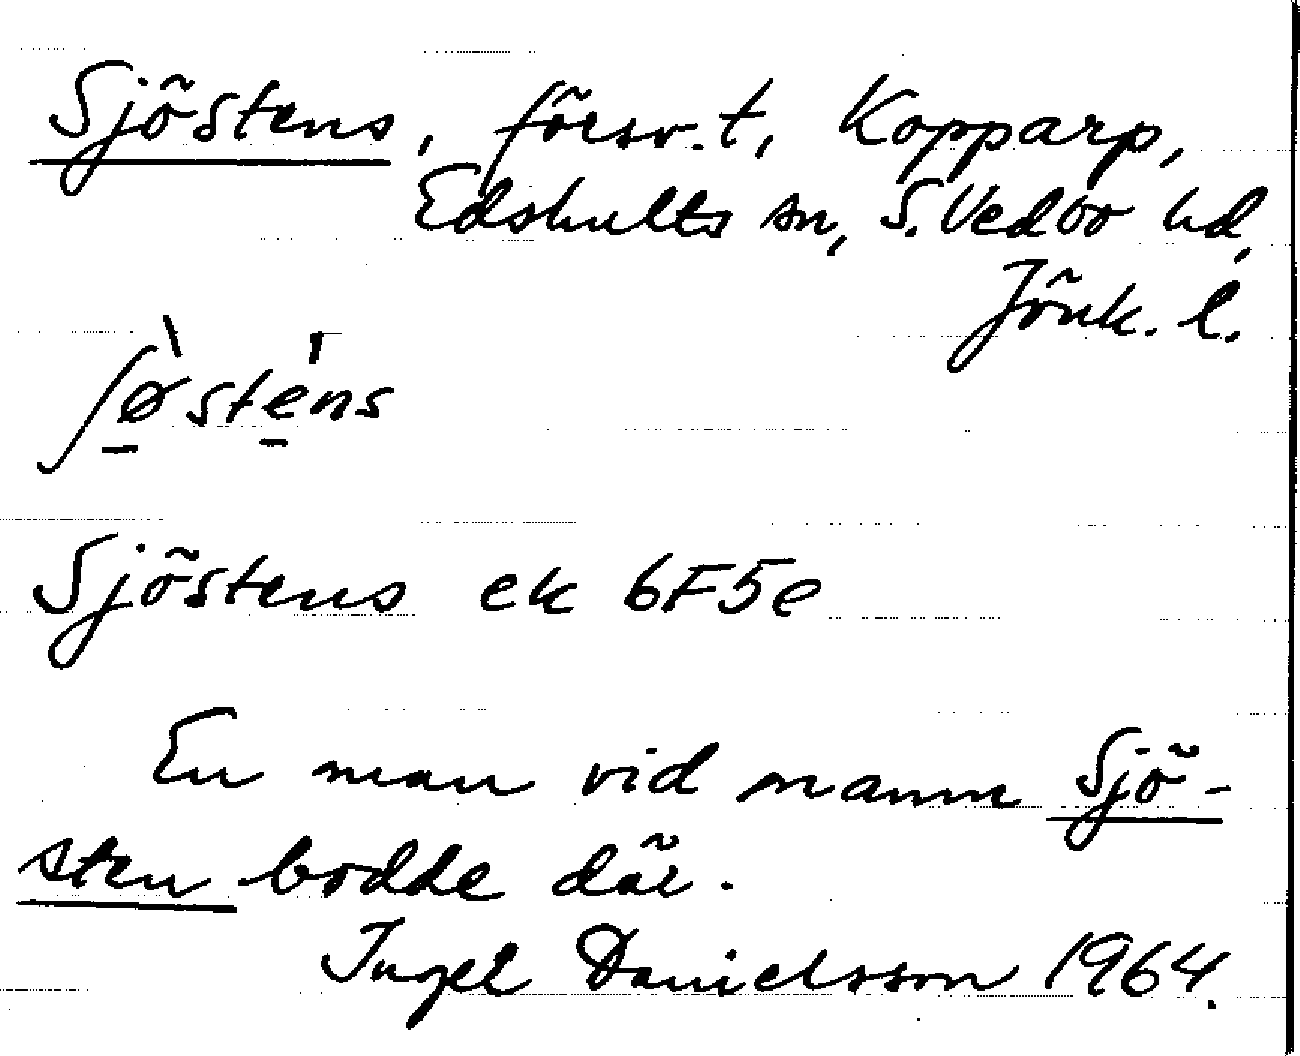 Sjöstens, försv. t, Kopparp,
Edshults sn, S. Vedbo hd,
Jönk. l.
ʃø̠̀ste̠̍ns
Sjöstens ek 6F5e
En man vid namn Sjö-
sten bodde där.
Ingel Danielsson 1964.